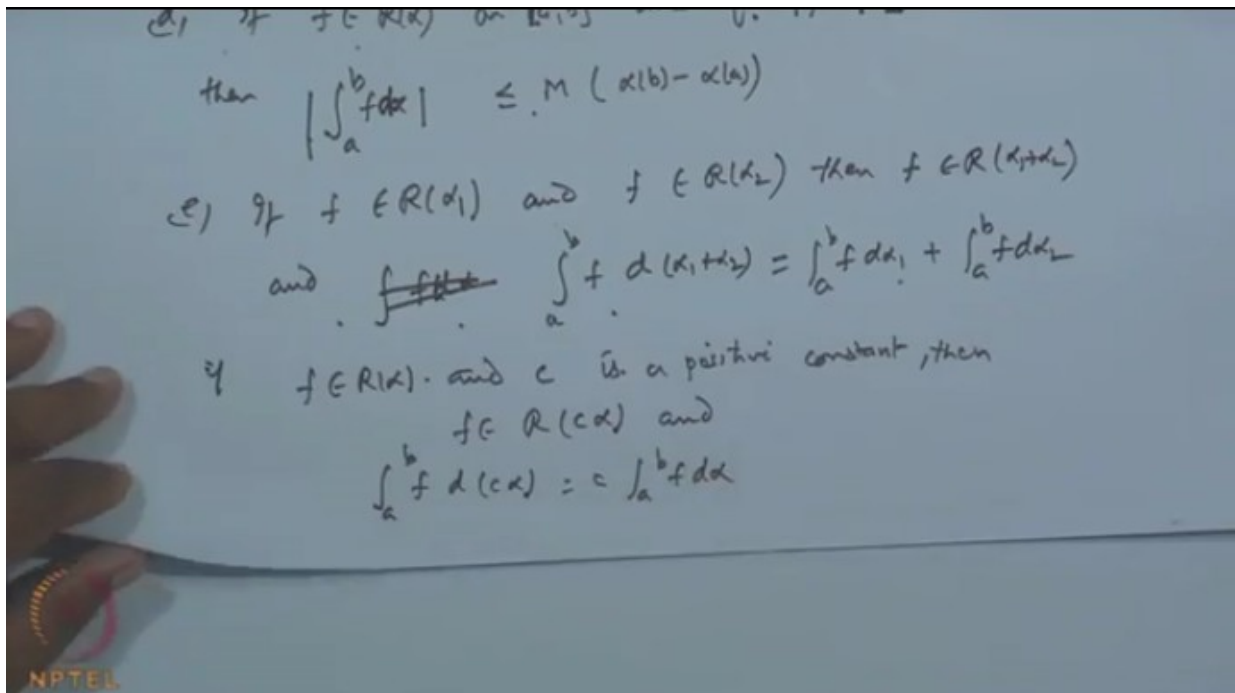 d) If f ∈ R(α) on [a,b]
then |∫_a^b f dα| ≤ M (α(b) - α(a))
e) If f ∈ R(α₁) and f ∈ R(α₂) then f ∈ R(α₁+α₂)
and ∫_a^b f d(α₁+α₂) = ∫_a^b f dα₁ + ∫_a^b f dα₂
if f ∈ R(α). and c is a positive constant, then
f ∈ R(cα) and
∫_a^b f d(cα) = c ∫_a^b f dα
NPTEL